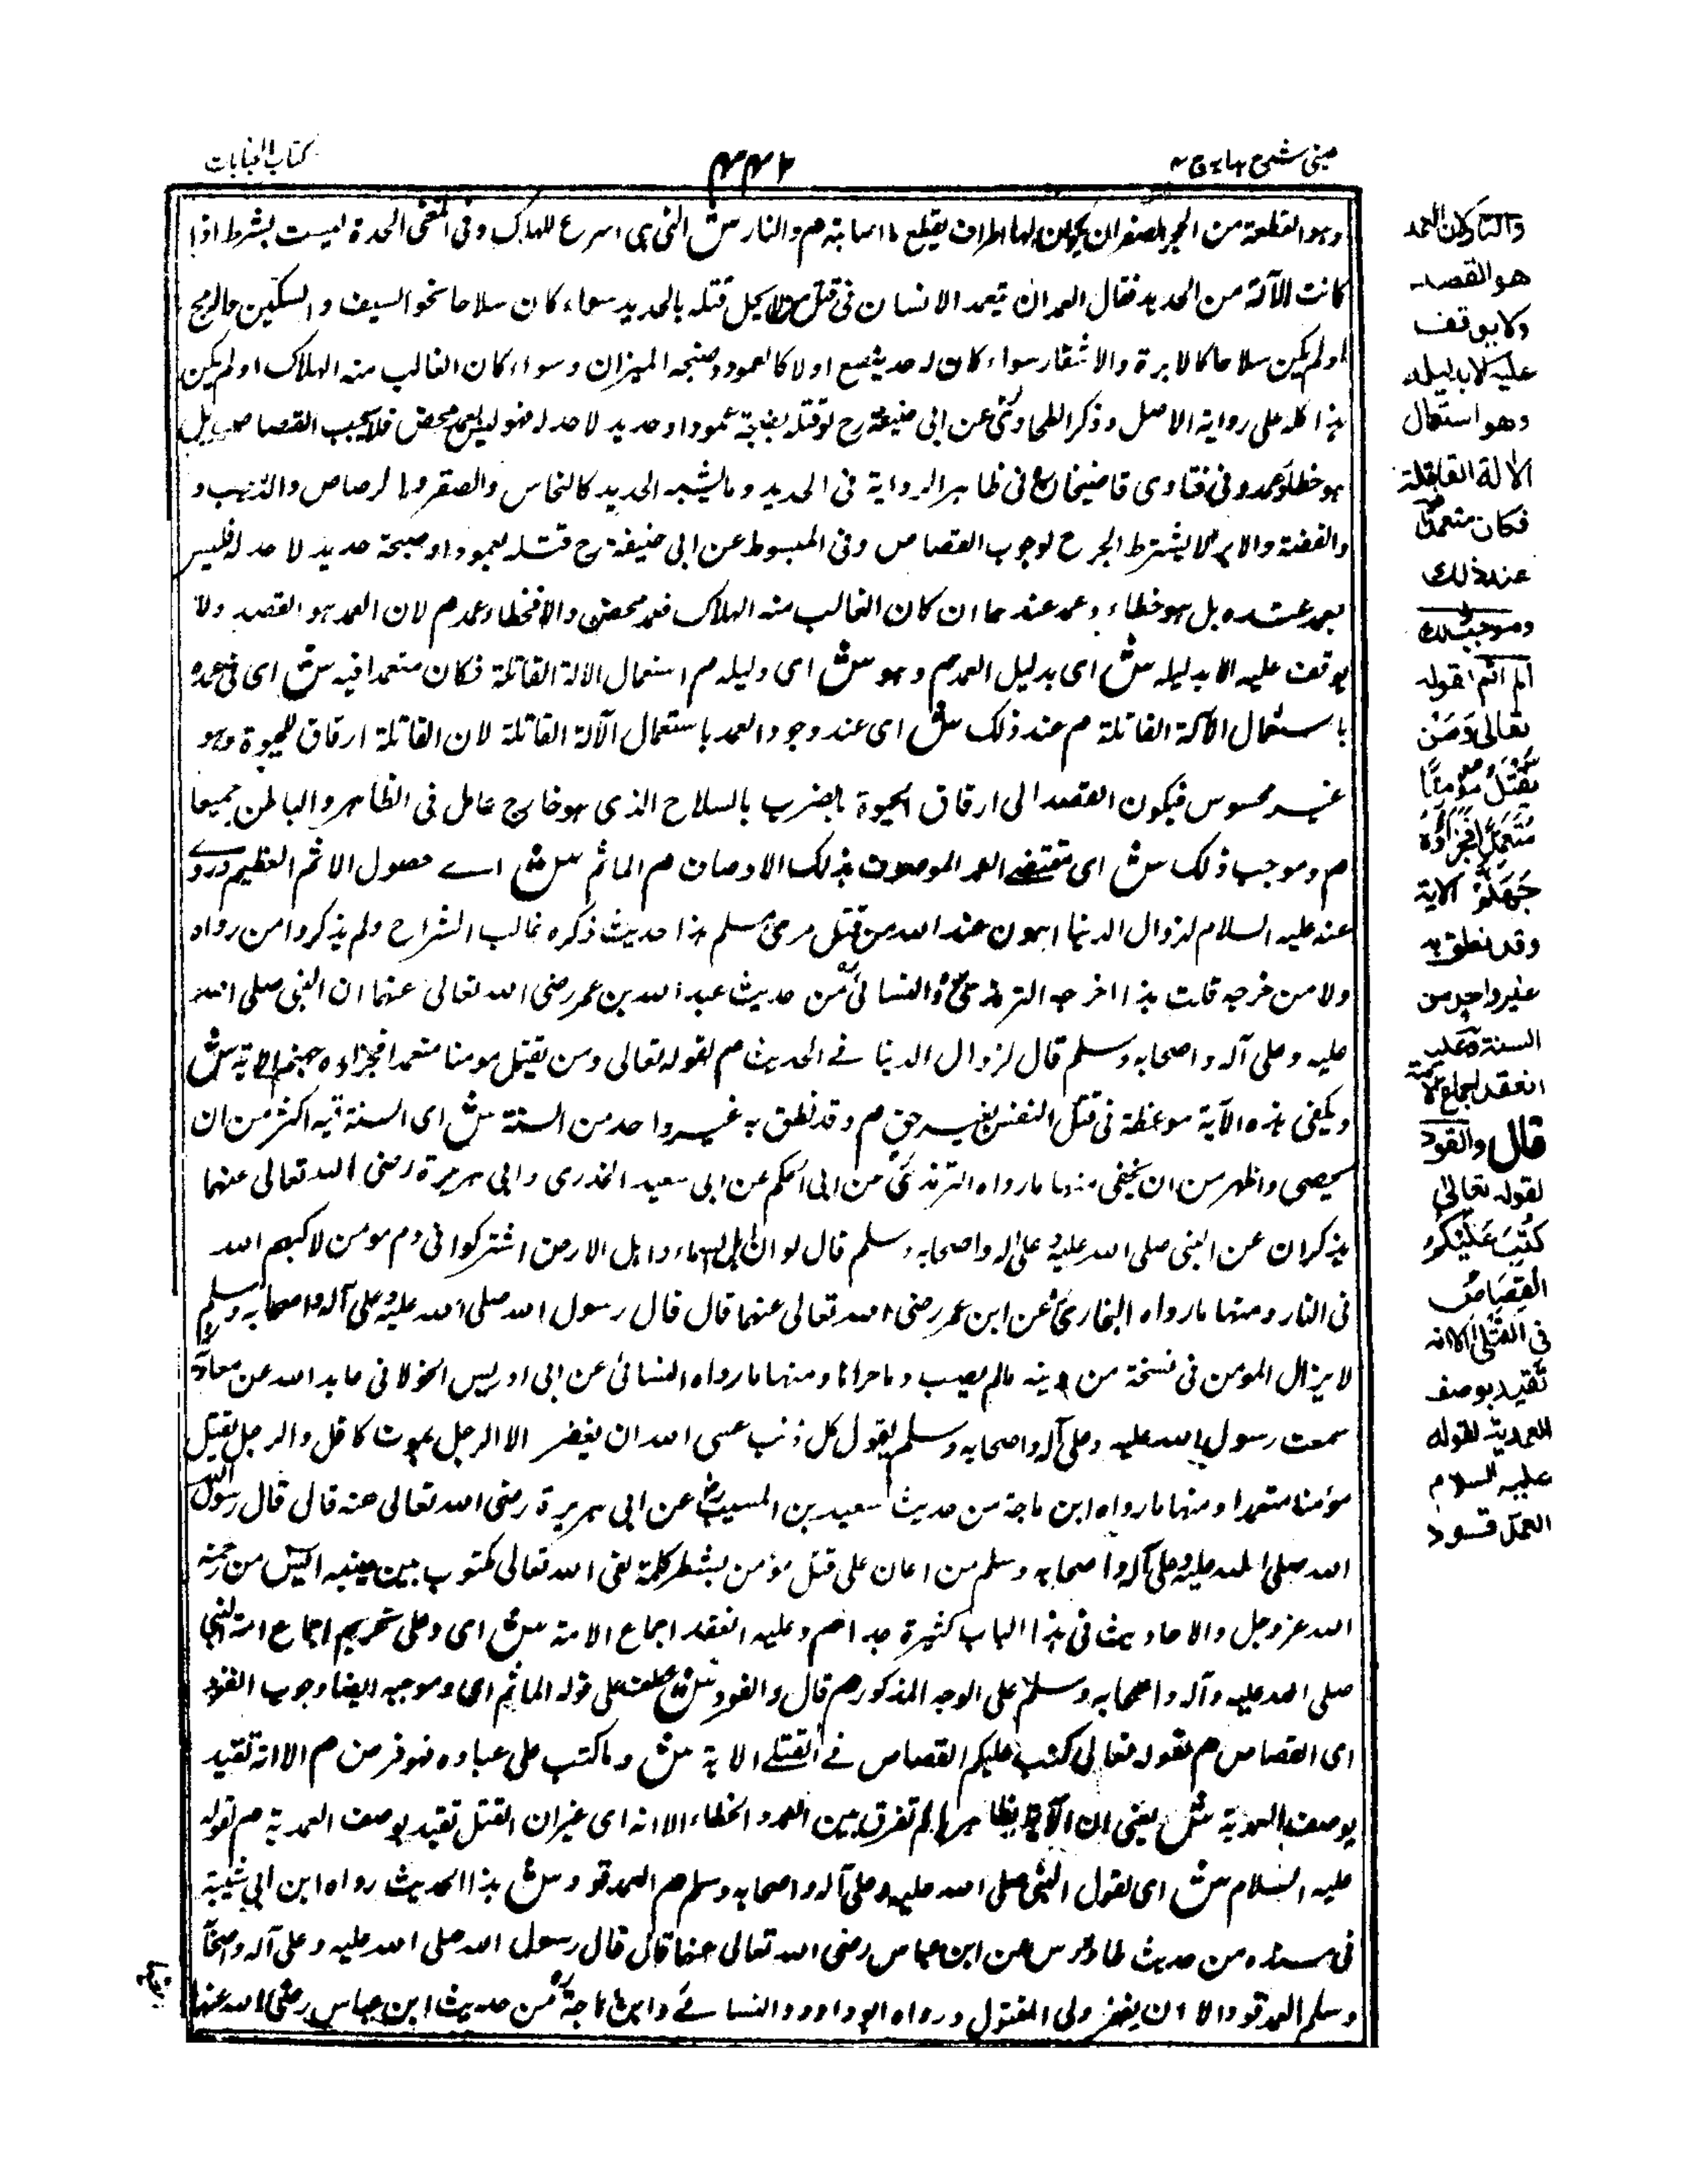 عينى شرح هدايه ج ٤
٤٤٢
كتاب الجنايات
وهو القطعة من الحجر اصغر ان يكون لها اطراف يقطع ما اصابته م والنار ش التى هى اسرع للهلاك وفى المغنى الحدة ليست بشرط اذا
كانت الآلة من الحديد فقال العمد ان يتعمد الانسان فى قتل من لا يحل قتله بالحديد سواء كان سلاحا نحو السيف والسكين والرمح
او لم يكن سلاحا كالابرة والاشفار سواء كان له حد يبضع او لا كالعمود وصنجه الميزان وسواء كان الغالب منه الهلاك او لم يكن
هذا كله على رواية الاصل وذكر الطحاوى عن ابى حنيفة رح لو قتله بصنجة عمود او حديد لا حد له فهو ليس بعمد محض فلا يجب القصاص بل
هو خطاء عمد وفى فتاوى قاضيخان فى ظاهر الرواية فى الحديد وما يشبه الحديد كالنحاس والصفر والرصاص والذهب و
والفضة لا يشترط الجرح لوجوب القصاص وفى المبسوط عن ابى حنيفة رح قتله بعمود او صنجة حديد لا حد له فليس
بعمد عنده بل هو خطاء وعمد عندهما ان كان الغالب منه الهلاك فعمد محض والا فخطاء عمد م لان العمد هو القصد ولا
يوقف عليه الا بدليله ش اى بدليل العمد م وهو ش اى دليله م استعمال الالة القاتلة فكان متعمدا فيه ش اى فى عمده
باستعمال الآلة القاتلة م عند ذلك ش اى عند وجود العمد باستعمال الآلة القاتلة لان القاتلة ارقاق للحيوة وهو
غير محسوس فيكون القصد الى ارقاق الحيوة بالضرب بالسلاح الذى هو خارج عامل فى الظاهر والباطن جميعا
م وموجب ذلك ش اى مقتضى العمد الموصوف بذلك الاوصاف م الماثم ش اے حصول الاثم العظيم وروے
عنه عليه السلام لزوال الدنيا اهون عند الله من قتل امرئ مسلم هذا حديث ذكره غالب الشراح ولم يذكروا من رواه
ولا من خرجه قلت هذا اخرجه الترمذى والنسائى من حديث عبد الله بن عمر رضى الله تعالى عنهما ان النبى صلى الله
عليه وعلى آله واصحابه وسلم قال لزوال الدنيا فے الحديث م لقوله تعالى ومن يقتل مومنا متعمدا فجزاؤه جهنم الاية ش
ويكفى هذه الآية موعظة فى قتل النفس بغير حق م وقد نطق به غير واحد من السنة ش اى السنة فيه اكثر من ان
يحصى واظهر من ان يخفى منها ما رواه الترمذى من ابى الحكم عن ابى سعيد الخدرى وابى هريرة رضى الله تعالى عنهما
يذكران عن النبى صلى الله عليه وعلى آله واصحابه وسلم قال لو ان اهل السماء واهل الارض اشتركوا فى دم مومن لاكبهم الله
فى النار ومنها ما رواه البخارى عن ابن عمر رضى الله تعالى عنهما قال قال رسول الله صلى الله عليه وعلى آله واصحابه وسلم
لا يزال المؤمن فى فسحة من دينه مالم يصب دما حراما ومنها ما رواه النسائى عن ابى ادريس الخولانى عابد الله عن معاوية
سمعت رسول الله عليه وعلى آله واصحابه وسلم يقول كل ذنب عسى الله ان يغفر الا الرجل يموت كافرا والرجل يقتل
مؤمنا متعمدا ومنها ما رواه ابن ماجة من حديث سعيد بن المسيب عن ابى هريرة رضى الله تعالى عنه قال قال رسول
الله صلى الله عليه وعلى آله واصحابه وسلم من اعان على قتل مؤمن بشطر كلمة لقى الله تعالى مكتوب بين عينيه آيس من رحمة
الله عز وجل والاحاديث فى هذا الباب كثيرة جدا م وعليه انعقد اجماع الامة ش اى وعلى تحريم اجماع امة النبى
صلى الله عليه وآله واصحابه وسلم على الوجه المذكور م قال والقود ش عطف على قوله الماثم اى وموجبه ايضا وجوب القود
اى القصاص م لقوله تعالى كتب عليكم القصاص فے القتلے الاية ش وما كتب على عباده فهو فرض م الا انه تقيد
بوصف العمدية ش يعنى ان الآية بظاهرها لم تفرق بين العمد والخطاء الا انه اى غير ان القتل تقيد بوصف العمدية م لقوله
عليه السلام ش اى لقول النبى صلى الله عليه وعلى آله واصحابه وسلم م العمد قود ش هذا الحديث رواه ابن ابى شيبة
فى مسنده من حديث طاؤس عن ابن عباس رضى الله تعالى عنهما قال قال رسول الله صلى الله عليه وعلى آله واصحابه
وسلم العمد قود الا ان يغفر ولى المقتول ورواه ابو داود والنسائے وابن ماجة من حديث ابن عباس رضى الله عنهما
والنار لان العمد
هو القصد
ولا يوقف
عليه الا بدليله
وهو استعمال
الالة القاتلة
فكان متعمدا
عند ذلك
وموجب ذلك
الماثم لقوله
تعالى وَمَنْ
يَقْتُلْ مُؤمِنًا
مُتَعَمِّدًا فَجَزَاؤُهُ
جَهَنَّمُ الاية
وقد نطق به
غير واحد من
السنة وعليه
انعقد اجماع الامة
قال والقود
لقوله تعالى
كُتِبَ عَلَيْكُمُ
القِصَاصُ
فِى القَتْلَى الا انه
تقيد بوصف
العمدية لقوله
عليه السلام
العمد قود